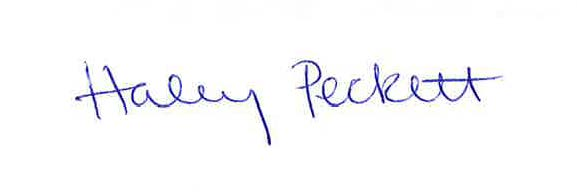 Haley Peckett